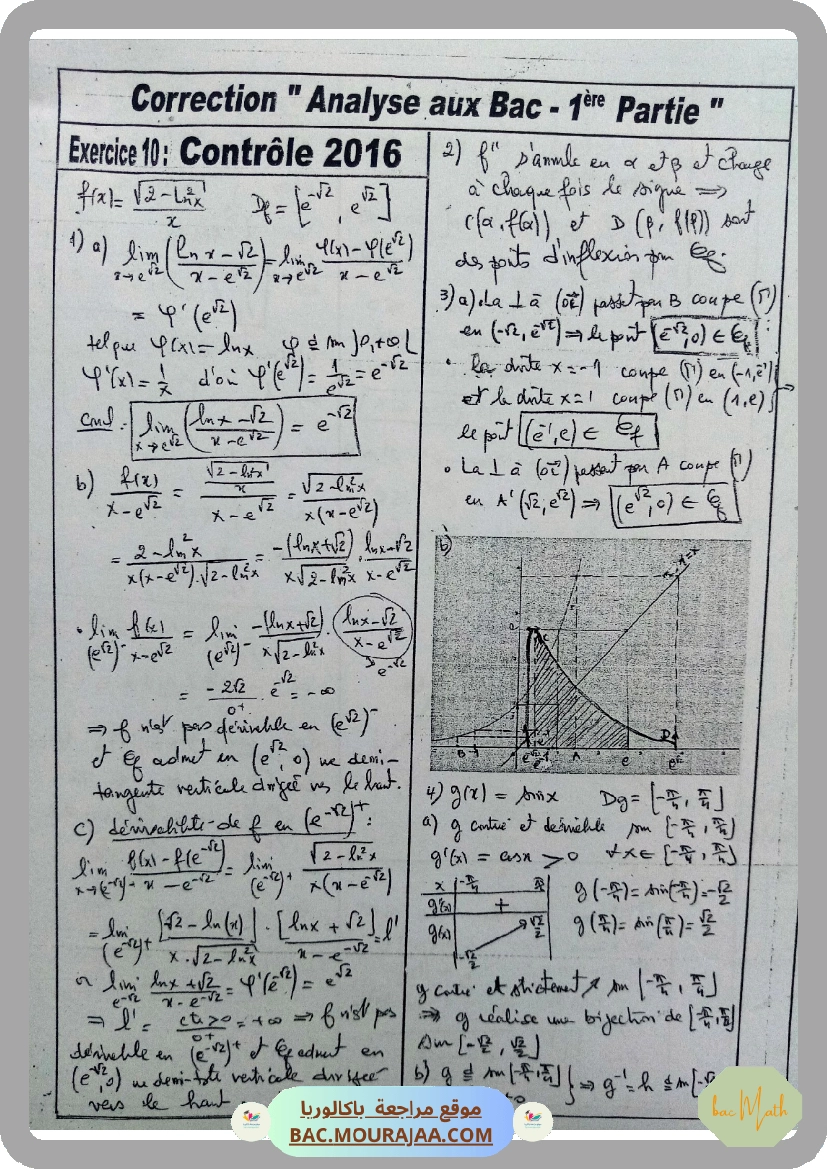 Correction " Analyse aux Bac - 1ère Partie "
Exercice 10 : Contrôle 2016
f(x) = √(2 - ln²x) / x   Df = [e^-√2 , e^√2]
1) a) lim x→e^√2 ((ln x - √2)/(x - e^√2)) = lim x→e^√2 (φ(x) - φ(e^√2))/(x - e^√2)
= φ'(e^√2)
tel que φ(x) = ln x   φ d sur ]0, +∞[
φ'(x) = 1/x   d'où φ'(e^√2) = 1/e^√2 = e^-√2
Concl : lim x→e^√2 ((ln x - √2)/(x - e^√2)) = e^-√2
b) f(x)/(x - e^√2) = (√(2 - ln²x)/x)/(x - e^√2) = √(2 - ln²x)/(x(x - e^√2))
= (2 - ln²x)/(x(x - e^√2).√(2 - ln²x)) = -(ln x + √2)/(x√(2 - ln²x)) . (ln x - √2)/(x - e^√2)
• lim (e^√2)^- f(x)/(x - e^√2) = lim (e^√2)^- -(ln x + √2)/(x√(2 - ln²x)) . (ln x - √2)/(x - e^√2) → e^-√2
= -2√2/0+ . e^-√2 = -∞
⇒ f n'est pas dérivable en (e^√2)^-
et ζf admet en (e^√2, 0) une demi-
tangente verticale dirigée vers le haut.
c) dérivabilité de f en (e^-√2)^+ :
lim x→(e^-√2)^+ (f(x) - f(e^-√2))/(x - e^-√2) = lim (e^-√2)^+ √(2 - ln²x)/(x(x - e^-√2))
= lim (e^-√2)^+ [√2 - ln(x)]/(x.√(2 - ln²x)) . [ln x + √2]/(x - e^-√2) = l'
or lim e^-√2 (ln x + √2)/(x - e^-√2) = φ'(e^-√2) = e^√2
⇒ l' = cte>0/0+ = +∞ ⇒ f n'est pas
dérivable en (e^-√2)^+ et ζf admet en
(e^-√2, 0) une demi-tgte verticale dirigée
vers le haut
2) f'' s'annule en α et β et change
à chaque fois le signe ⇒
C(α, f(α)) et D(β, f(β)) sont
des points d'inflexion pour ζf.
3) a) • La ⊥ à (oi) passant par B coupe (Γ)
en (-√2, e^-√2) ⇒ le point (e^-√2, 0) ∈ ζf
• la droite x = -1 coupe (Γ) en (-1, e^-1)
et la droite x = 1 coupe (Γ) en (1, e)
le point (e^-1, e) ∈ ζf
• La ⊥ à (oi) passant par A coupe (Γ)
en A'(√2, e^√2) ⇒ (e^√2, 0) ∈ ζf
b)
y = x
C
D
B -1 e^-√2 e^-1 A e e^√2
4) g(x) = sin x   Dg = [-π/4, π/4]
a) g continue et dérivable sur [-π/4, π/4]
g'(x) = cos x > 0   ∀x ∈ [-π/4, π/4]
x   -π/4   π/4
g'(x)   +
g(x)   -√2/2   √2/2
g(-π/4) = sin(-π/4) = -√2/2
g(π/4) = sin(π/4) = √2/2
g continue et strictement ↗ sur [-π/4, π/4]
⇒ g réalise une bijection de [-π/4, π/4]
sur [-√2/2, √2/2]
b) g d sur [-π/4, π/4] } ⇒ g^-1 = h d sur [-√
موقع مراجعة باكالوريا
BAC.MOURAJAA.COM
bac Math